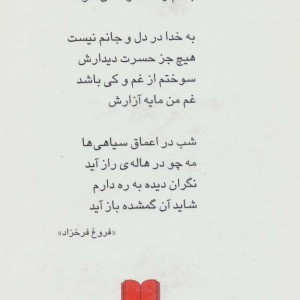 به خدا در دل و جانم نیست
هیچ جز حسرت دیدارش
سوختم از غم و کی باشد
غم من مایه آزارش
شب در اعماق سیاهی‌ها
مه چو در هاله‌ی راز آید
نگران دیده به ره دارم
شاید آن گمشده باز آید
«فروغ فرخزاد»